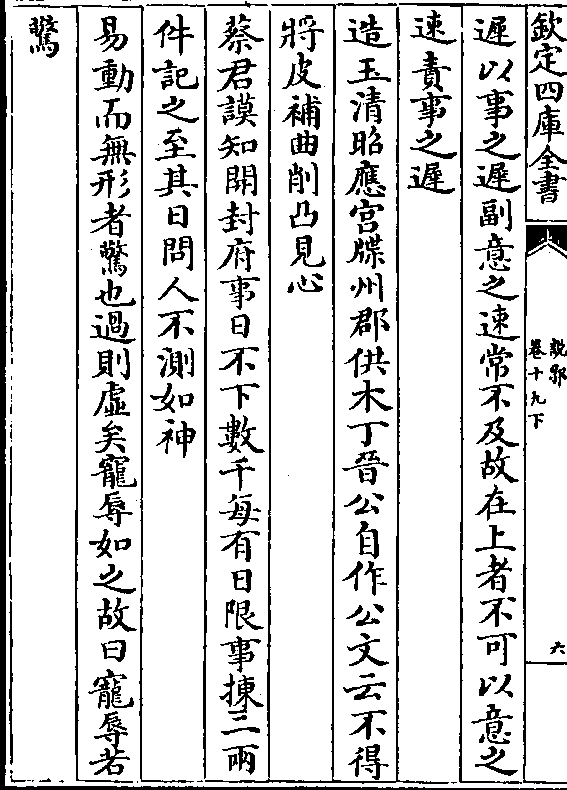 欽定四庫全書
說郛
卷十九下
六
遲以事之遲副意之速常不及故在上者不可以意之
速責事之遲
造玉清昭應宫牒州郡供木丁晉公自作公文云不得
將皮補曲削凸見心
蔡君謨知開封府事日不下數千每有日限事揀三兩
件記之至其日問人不測如神
易動而無形者驚也過則虛矣寵辱如之故曰寵辱若
驚